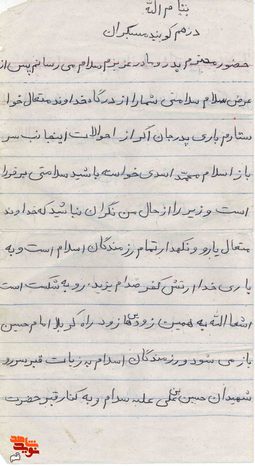 بنام الله
درهم کوبنده ستمگران
حضور محترم پدر و مادر عزیزم سلام می رسانم پس از
عرض سلام سلامتی شما را از درگاه خداوند متعال خوا
ستارم باری پدر جان اگر از احوالات اینجانب سر
باز اسلام محمد اسدی خواسته باشید سلامتی برقرار
است و زیرا از حال من نگران نباشید که خداوند
متعال یار و نگهدار تمام رزمندگان اسلام است و به
یاری خدا ارتش کفر صدام یزید رو به شکست است
انشا الله به همین زودی ها زود راه کربلا امام حسین
باز می شود و رزمندگان اسلام به زیارت قبر سرور
شهیدان حسین بن علی علیه سلام و به کنار قبر حضرت
شاهد
نوید